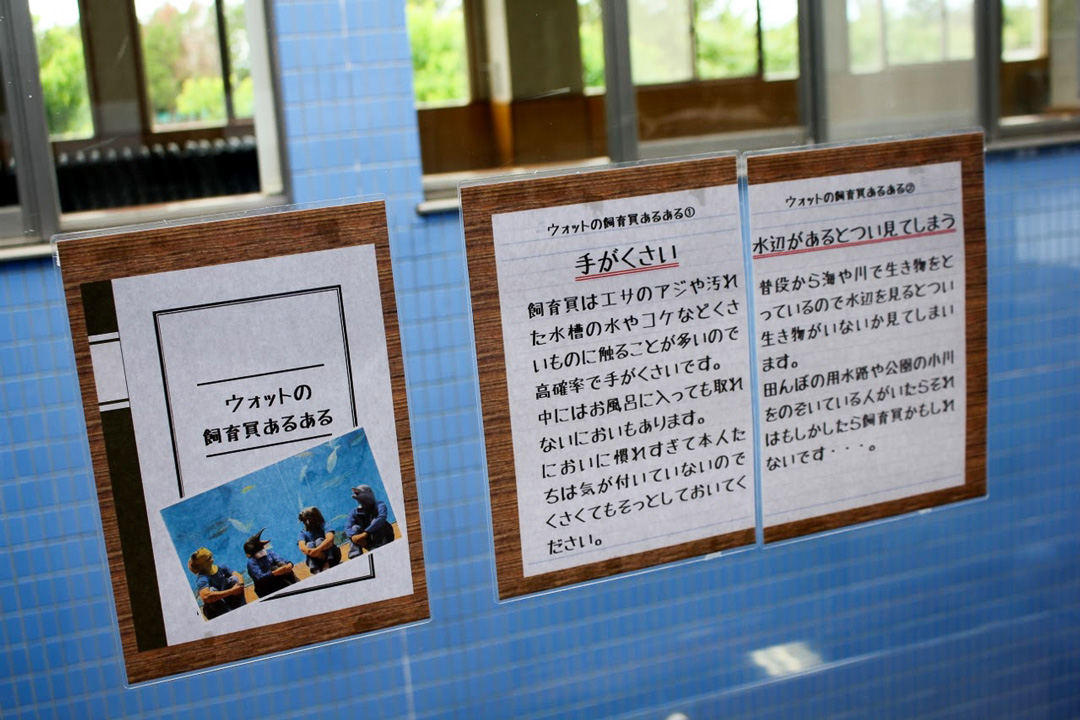 ウォットの
飼育員あるある
ウォットの飼育員あるある①
手がくさい
飼育員はエサのアジや汚れ
た水槽の水やコケなどくさ
いものに触ることが多いので
高確率で手がくさいです。
中にはお風呂に入っても取れ
ないにおいもあります。
においに慣れすぎて本人た
ちは気が付いていないので
くさくてもそっとしておいてく
ださい。
ウォットの飼育員あるある②
水辺があるとつい見てしまう
普段から海や川で生き物をと
っているので水辺を見るとつい
生き物がいないか見てしまい
ます。
田んぼの用水路や公園の小川
をのぞいている人がいたらそれ
はもしかしたら飼育員かもしれ
ないです・・・。